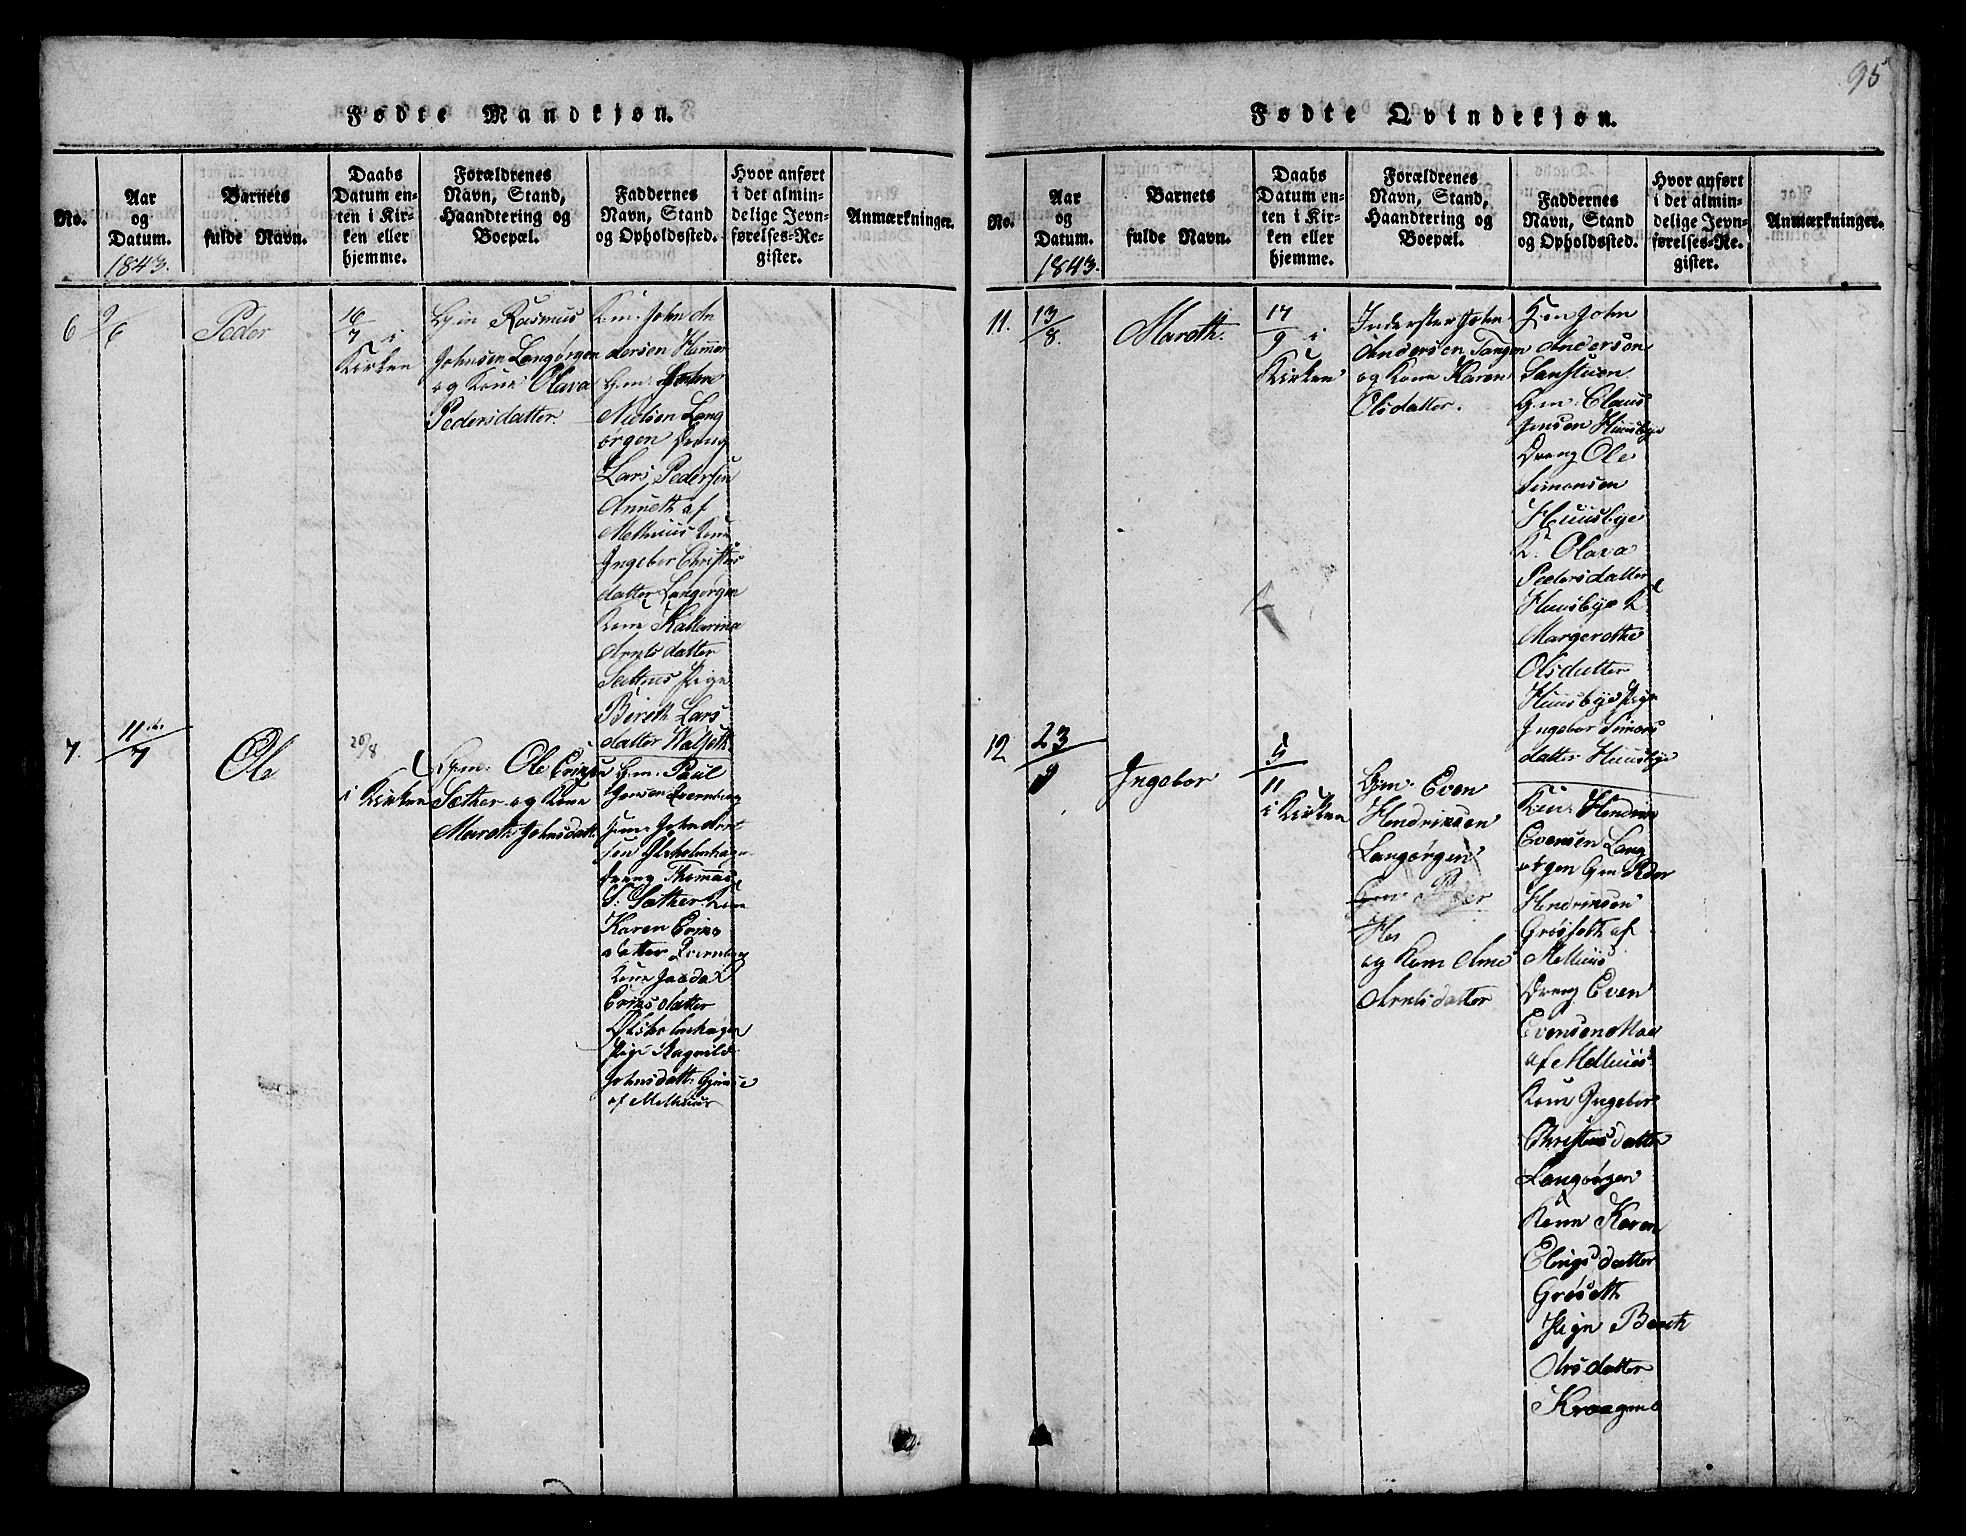 95
Fødte Mandkjøn.
No.
Aar
og
Datum.
1843.
Barnets
fulde Navn.
Daabs
Datum en-
ten i Kir-
ken eller
hjemme.
Forældrenes
Navn, Stand,
Haandtering og
Boepæl.
Faddernes
Navn, Stand
og Opholdssted.
Hvor anført
i det almin-
delige Jevn-
førelses-Re-
gister.
Anmærkninger.
6
9/6
Peder
16/7 i
Kirken
Gm Rasmus
Johnsen Langørgen
og Kone Olava
Pedersdatter.
John An
dersen Hammer
Gm.
Nielsen Lang
ørgen Dreng
Lars Pedersen
Anneth af
Melhuus Kone
Ingebor Christens
datter Langørgen
Kone Katharina
Arntsdatter
Pige
Bereth Lars
datter
7.
11te/7
Ole
20/8
i Kirken
Gm: Ole Ericsen
Sæther og Kone
Mareth Johnsdatt.
Gm: Paul
Jensen
John Arnt
sen
Dreng Thomas
S: Sæther Kone
Karen Erics
datter
Kone
Ericsdatter
Pige Ragnild
Johnsdatt: Gjimse
af Melhuus
Fødte Qvindekjøn.
No.
Aar
og
Datum.
1843.
Barnets
fulde Navn.
Daabs
Datum en-
ten i Kir-
ken eller
hjemme.
Forældrenes
Navn, Stand,
Haandtering og
Boepæl.
Faddernes
Navn, Stand
og Opholdssted.
Hvor anført
i det almin-
delige Jevn-
førelses-Re-
gister.
Anmærkninger.
11.
13/8.
Mareth.
17/9 i
Kirken
Inderster John
Andersen Tangen
og Kone Karen
Olsdatter.
Gm John
Andersen
Gm: Claus
Jensen Huusbye
Dreng Ole
Simonsen
Huusbye
K: Olava
Pedersdatter
Huusbye K
Margerethe
Olsdatter
Huusbye Pige
Ingebor Simons
datter Huusbye
12
23/9
Ingebor
5/11
i Kirken
Gm: Even
Hendricsen
Langørgen
og Kone Anne
Arntsdatter
Hendric
Evensen Lang
ørgen Gm Peder
Hendricsen
Grøseth af
Melhuus
Dreng Even
Evensen
af Melhuus
Kone Ingebor
Christensdatter
Langørgen
Kone Karen
Elingsdatter
Grøseth
Pige Bereth
Olsdatter